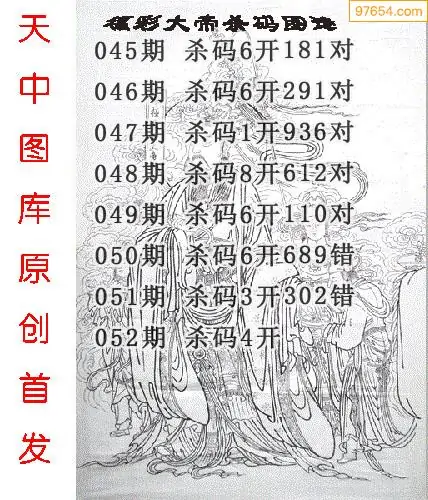 97654.com
福彩大帝杀码图迷
045期 杀码6开181对
046期 杀码6开291对
047期 杀码1开936对
048期 杀码8开612对
049期 杀码6开110对
050期 杀码6开689错
051期 杀码3开302错
052期 杀码4开
天中图库原创首发